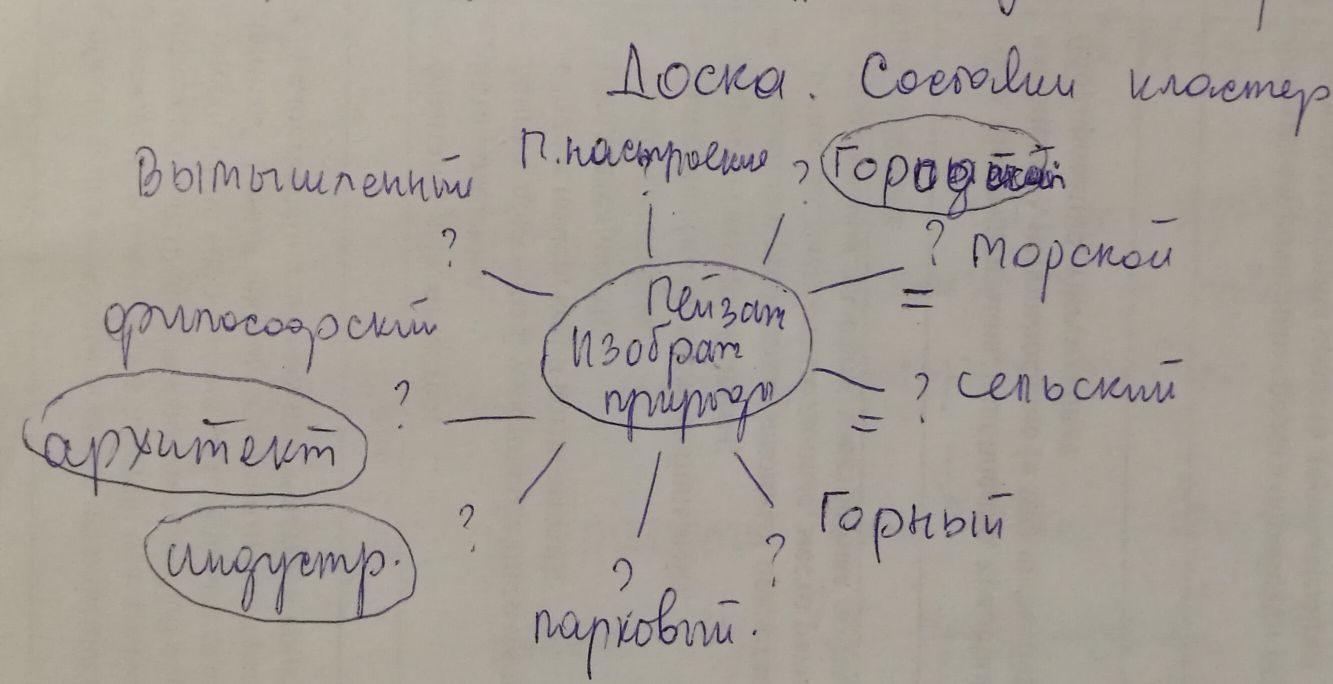 Доска. Составим кластер
П. настроение
? Городской
Вымышленный
?
? морской
=
Пейзаж
Изображ
природы
философский
?
? сельский
=
архитект
?
Горный
индустр.
?
?
парковый.